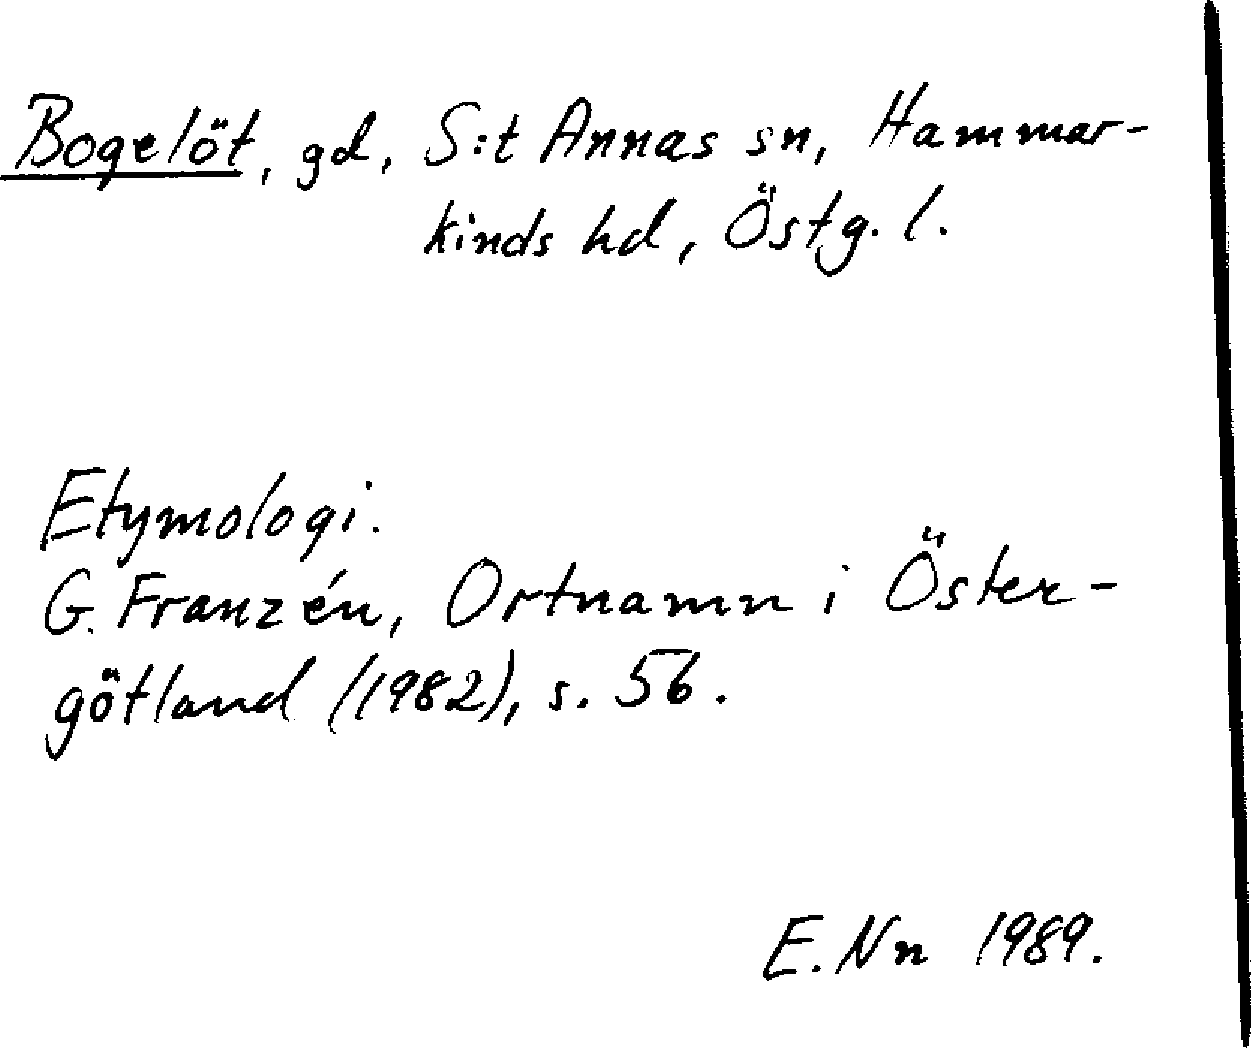 Bogelöt, gd, S:t Annas sn, Hammar-
kinds hd, Östg. l.
Etymologi.
G. Franzén, Ortnamn i Öster-
götland (1982), s. 56.
E. Nn 1989.